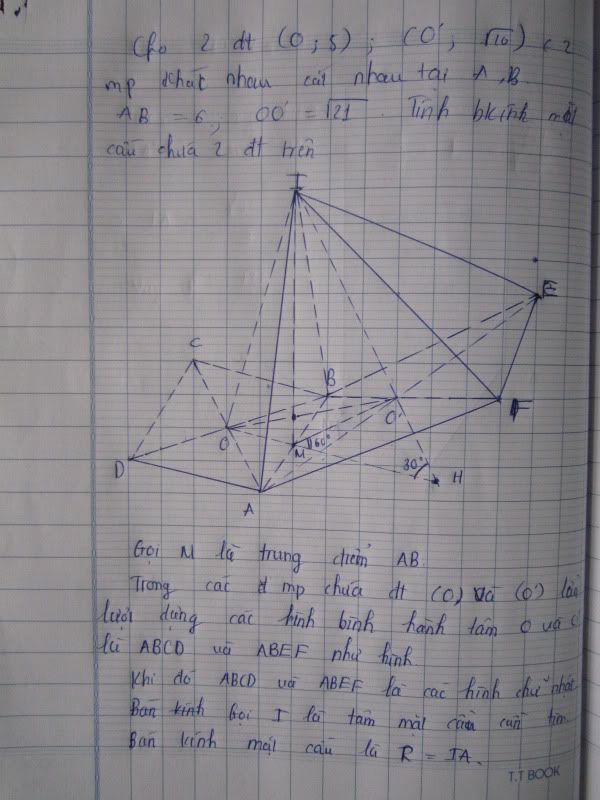 Cho 2 đt (O ; 5) ; (O' ; √10) ⊂ 2
mp khác nhau cắt nhau tại A, B
AB = 6 ; OO' = √21 . Tính bkính mặt
cầu chứa 2 đt trên
I
E
C
B
O
O'
F
M
60°
30°
H
D
A
Gọi M là trung điểm AB.
Trong các mp chứa đt (O) và (O') lần
lượt dựng các hình bình hành tâm O và O'
là ABCD và ABEF như hình
Khi đó ABCD và ABEF là các hình chữ nhật.
Gọi I là tâm mặt cầu cần tìm.
Bán kính mặt cầu là R = IA.
T.T BOOK